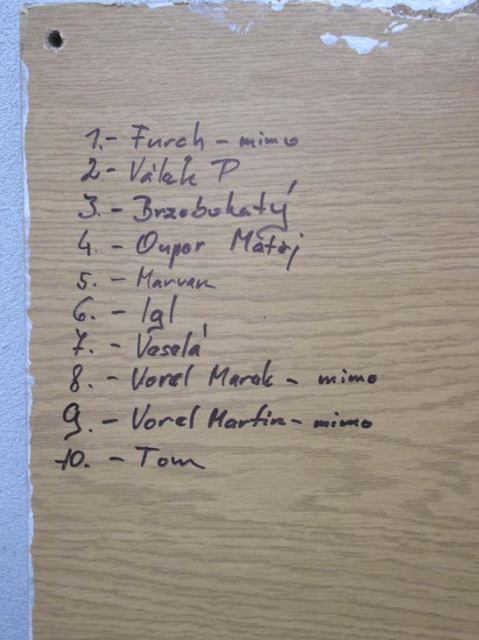 1.- Furch - mimo
2- Válek P
3. - Brzobohatý
4. - Oupor Matěj
5. - Marvan
6. - Igl
7. - Veselá
8. - Vorel Marek - mimo
9. - Vorel Martin - mimo
10. - Tom